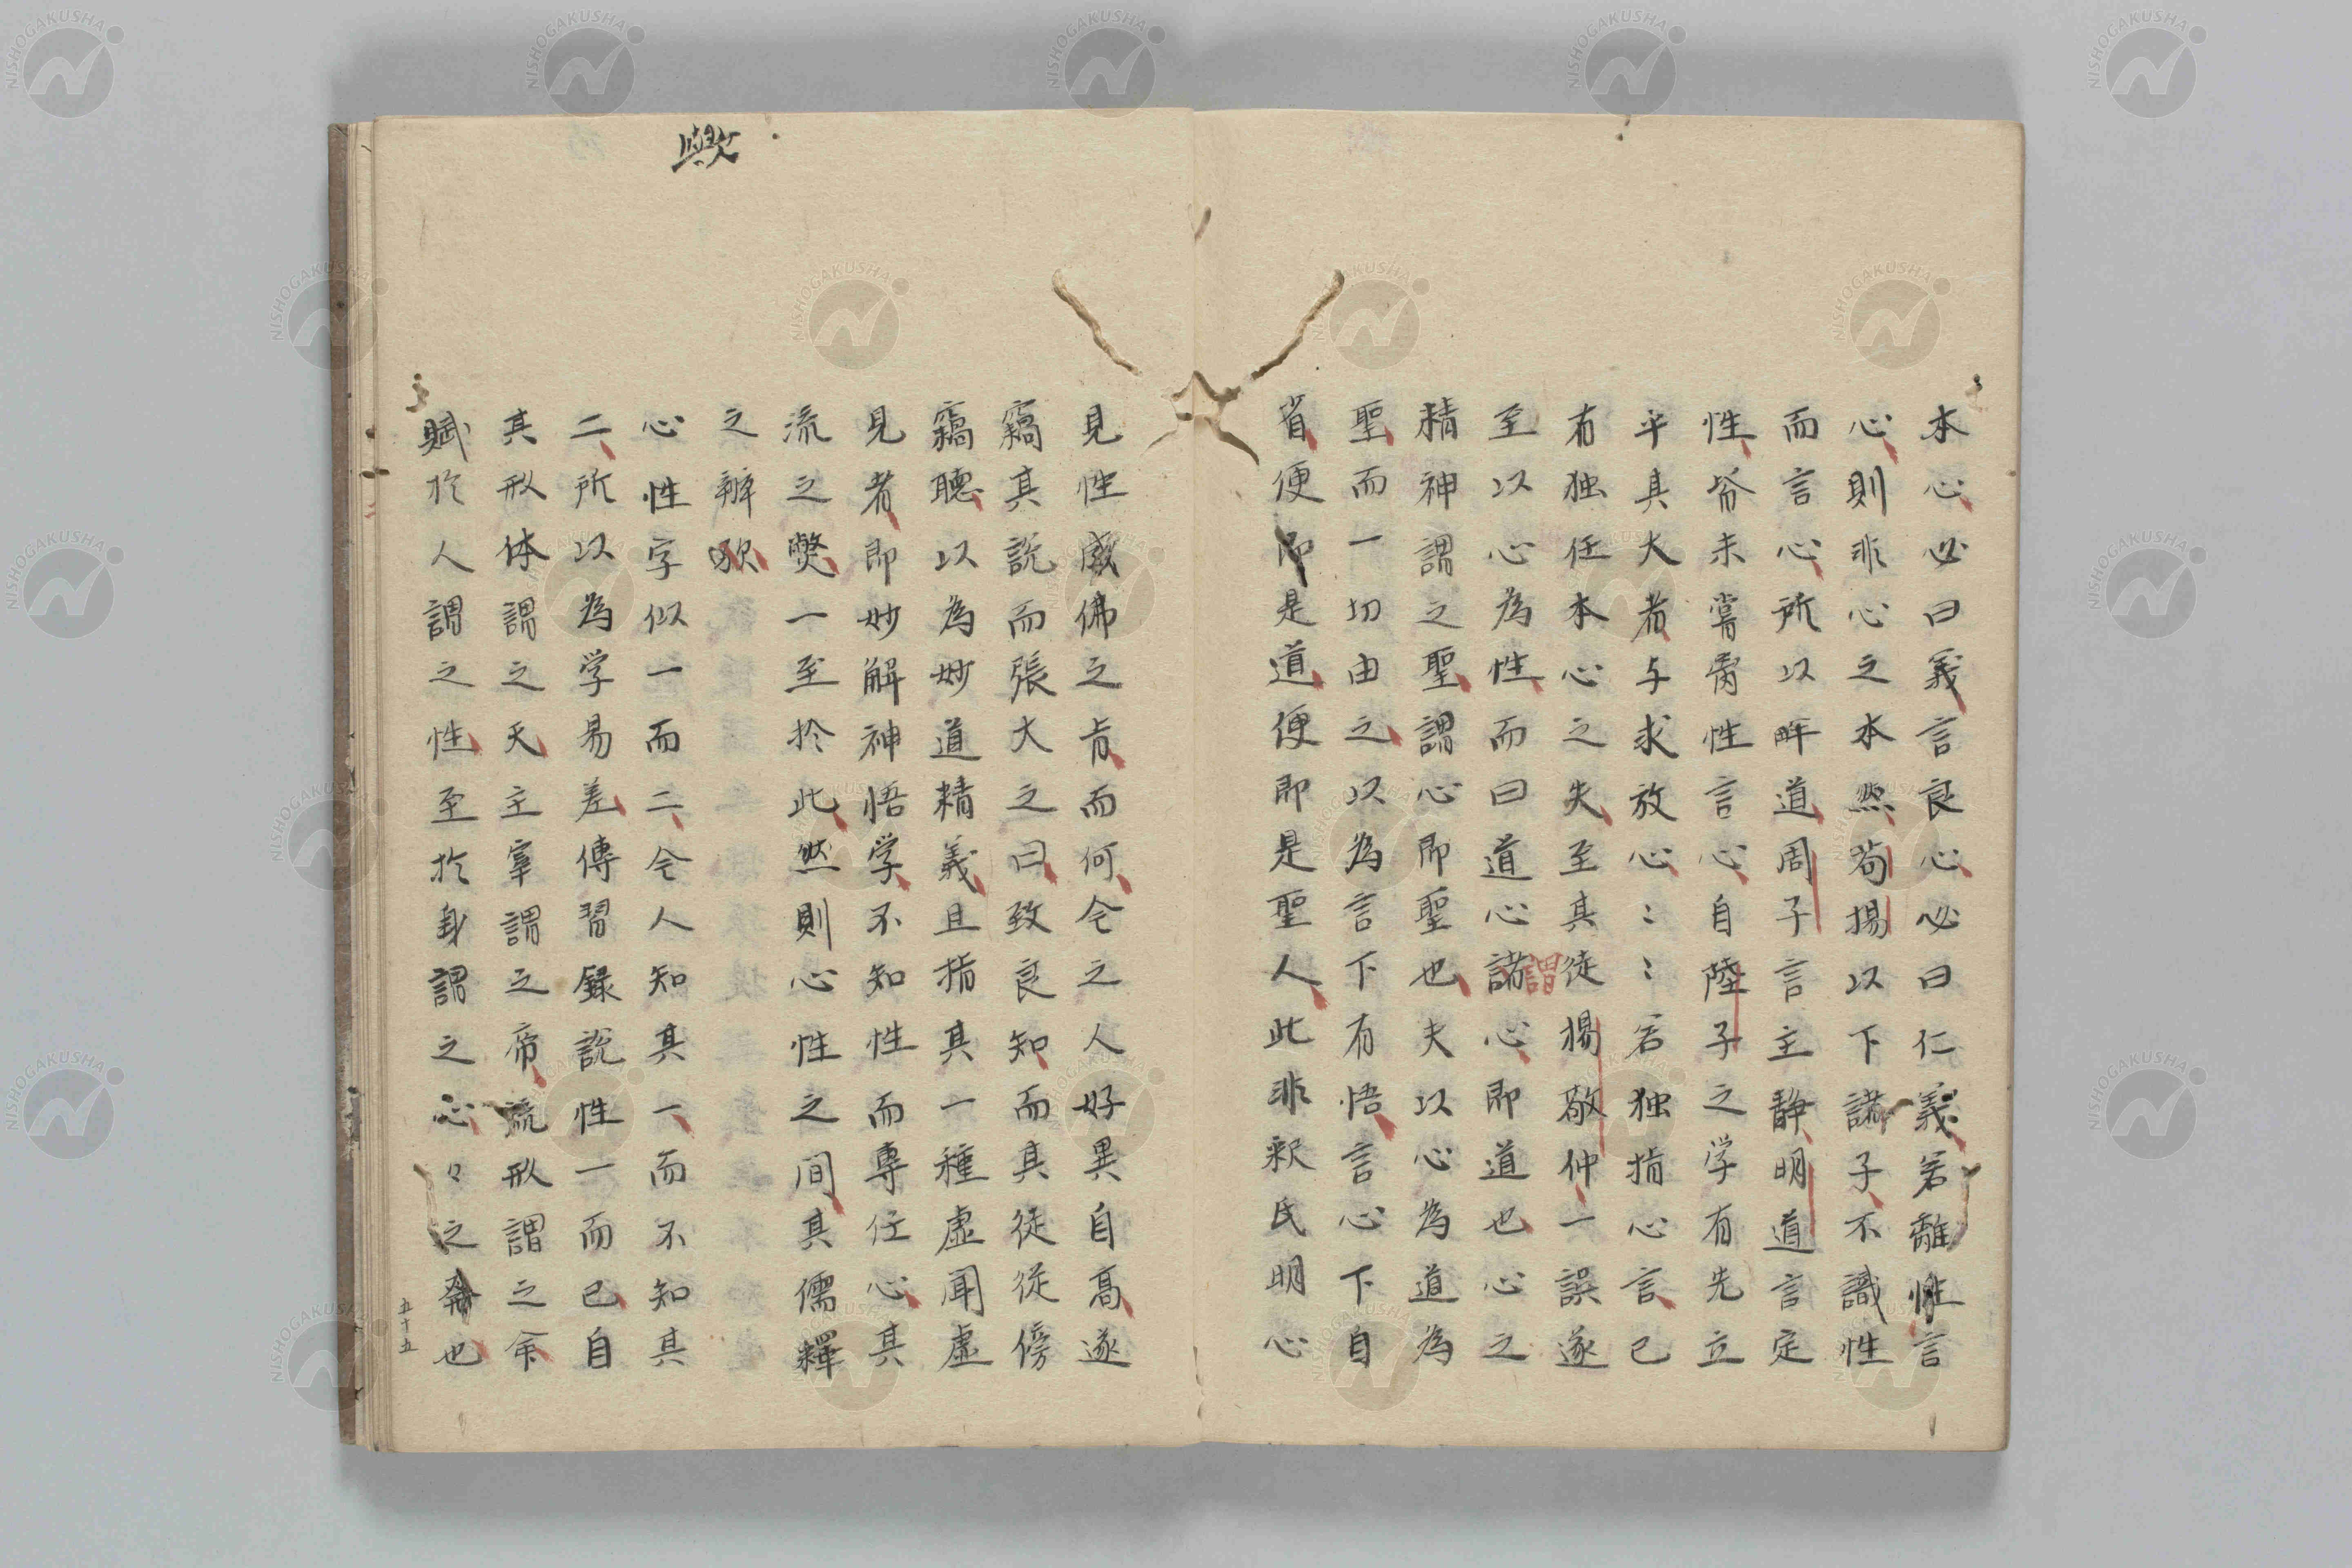 本心必曰義言良心必曰仁義若離性言
心則非心之本然荀揚以下諸子不識性
而言心所以畔道周子言主静明道言定
性皆未嘗离性言心自陸子之学有先立
乎其大者与求放心〻〻若独指心言已
有独任本心之失至其徒楊敬仲一誤遂
至以心為性而曰道心諸心即道也心之
謂
精神謂之聖謂心即聖也夫以心為道為
聖而一切由之以為言下有悟言心下自
省便即是道便即是聖人此非釈氏明心
見性成佛之肯而何今之人好異自高遂
竊其説而張大之曰致良知而其徒従傍
竊聴以為妙道精義且指其一種虚聞虚
見者即妙解神悟学不知性而專任心其
流之獘一至於此然則心性之间其儒釋
之辧欤
歟
心性字似一而二今人知其一而不知其
二所以為学易差傳習録説性一而已自
其形体謂之天主宰謂之帝流形謂之命
賦於人謂之性至於身謂之心々之發也
五十五
NISHOGAKUSHA